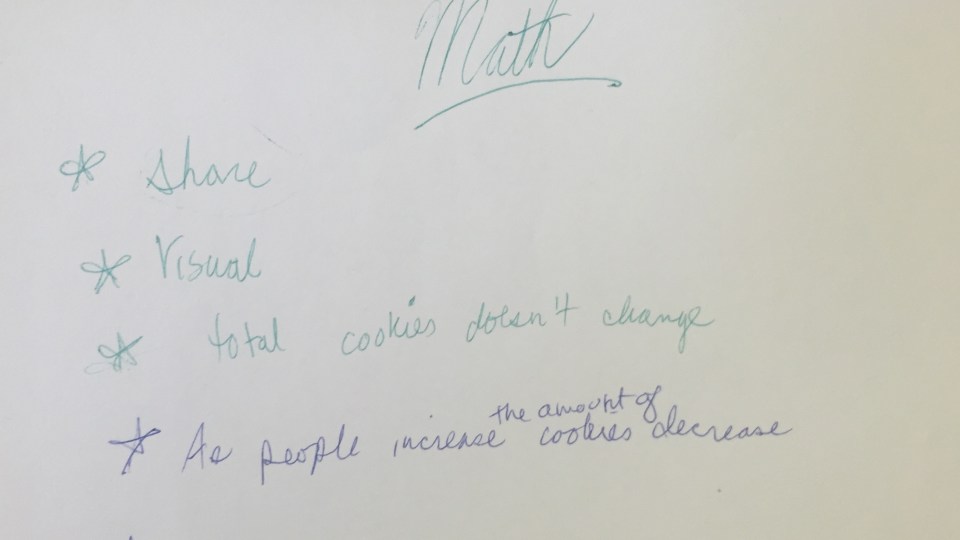 Math
* Share
* Visual
* total cookies doesn't change
the amount of
* As people increase cookies decrease